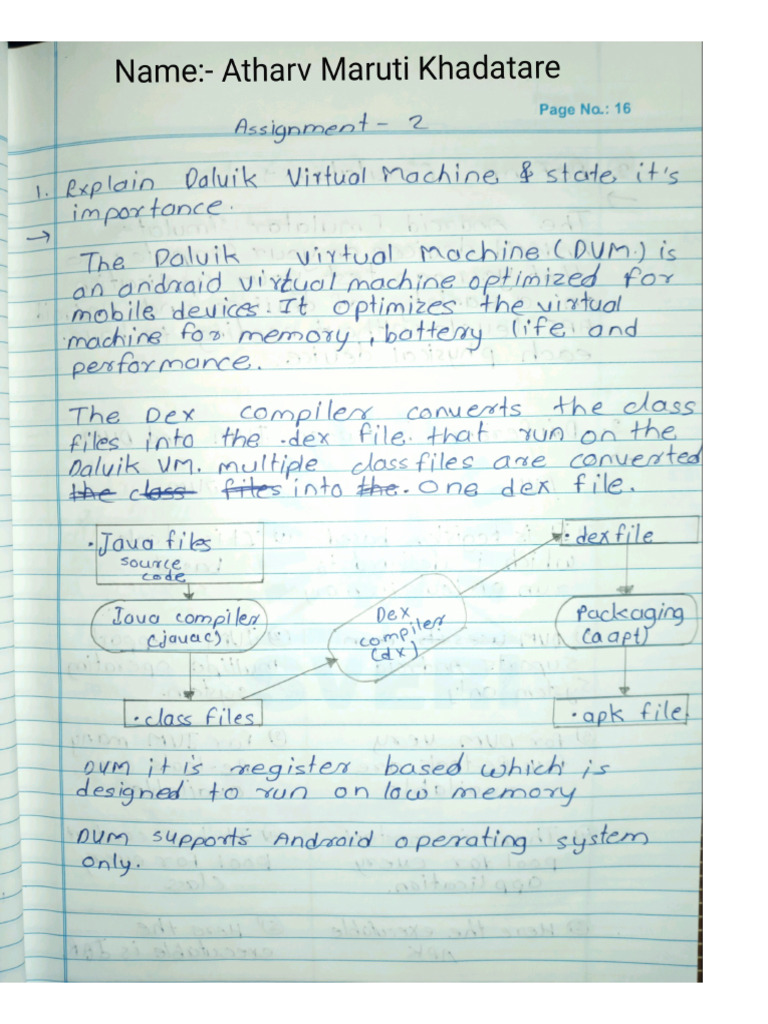 Name:- Atharv Maruti Khadatare
Page No.: 16
Assignment - 2
1. Explain Dalvik Virtual Machine & state it's
importance.
→
The Dalvik virtual Machine (DVM.) is
an android virtual machine optimized for
mobile devices. It optimizes the virtual
machine for memory, battery life and
performance.
The Dex compiler converts the class
files into the .dex file. that run on the
Dalvik VM. multiple class files are converted
the class files into the. one dex file.
.Java files
source
code
.dex file
Java compiler
(javac)
Dex
compiler
(dx)
Packaging
(aapt)
.class files
.apk file
DVM it is register based which is
designed to run on low memory
DVM supports Android operating system
only.